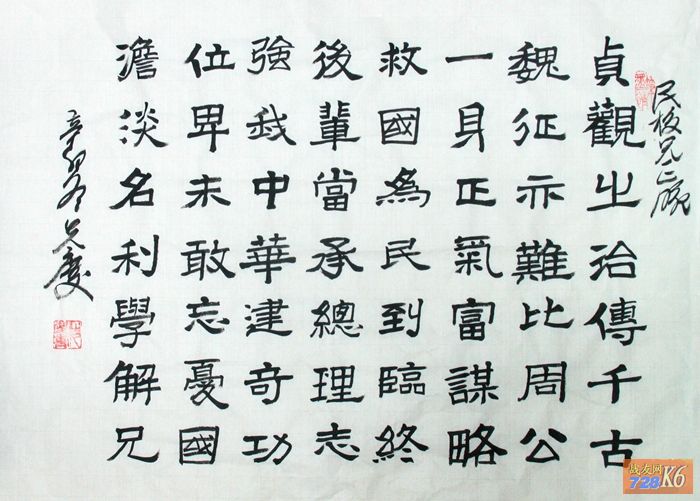 民 兄正腕
貞觀之治傳千古
魏征亦難比周公
一身正氣富謀略
救國為民到臨終
後輩當承總理志
強我中華建奇功
位卑未敢忘憂國
澹淡名利學解兄
辛卯冬
战友网
728K6